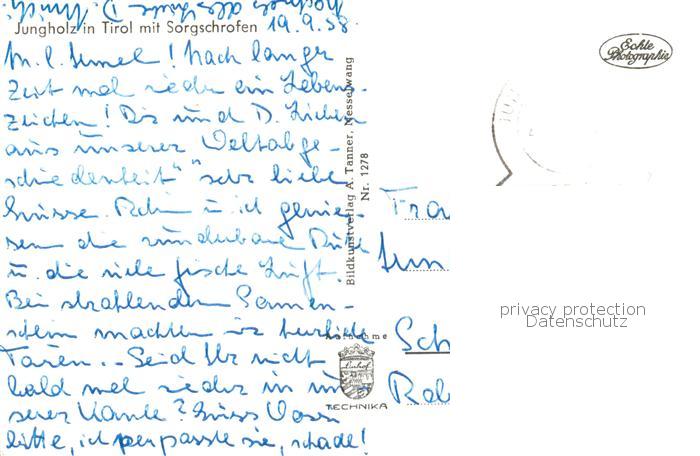 Jungholz in Tirol mit Sorgschrofen 19.9.58.
M. l. ! Nach langer
Zeit mal wieder ein Lebens-
zeichen! Dir und D. Lieben
aus unserer Weltabge-
schiedenheit" sehr liebe
Grüsse. u. ich genies-
sen die wunderbare Ruhe
u. die viele frische Luft.
Bei strahlendem Sonnen-
schein machten wir herrliche
Touren. Seid Ihr nicht
bald mal wieder in un-
serer Kante? Grüss
bitte, ich verpasste sie, schade!
Bildkunstverlag A. Tanner, Nesselwang
Nr. 1278
Aufnahme
Linhof
TECHNIKA
Echte
Photographie
Fra
Sch
privacy protection
Datenschutz